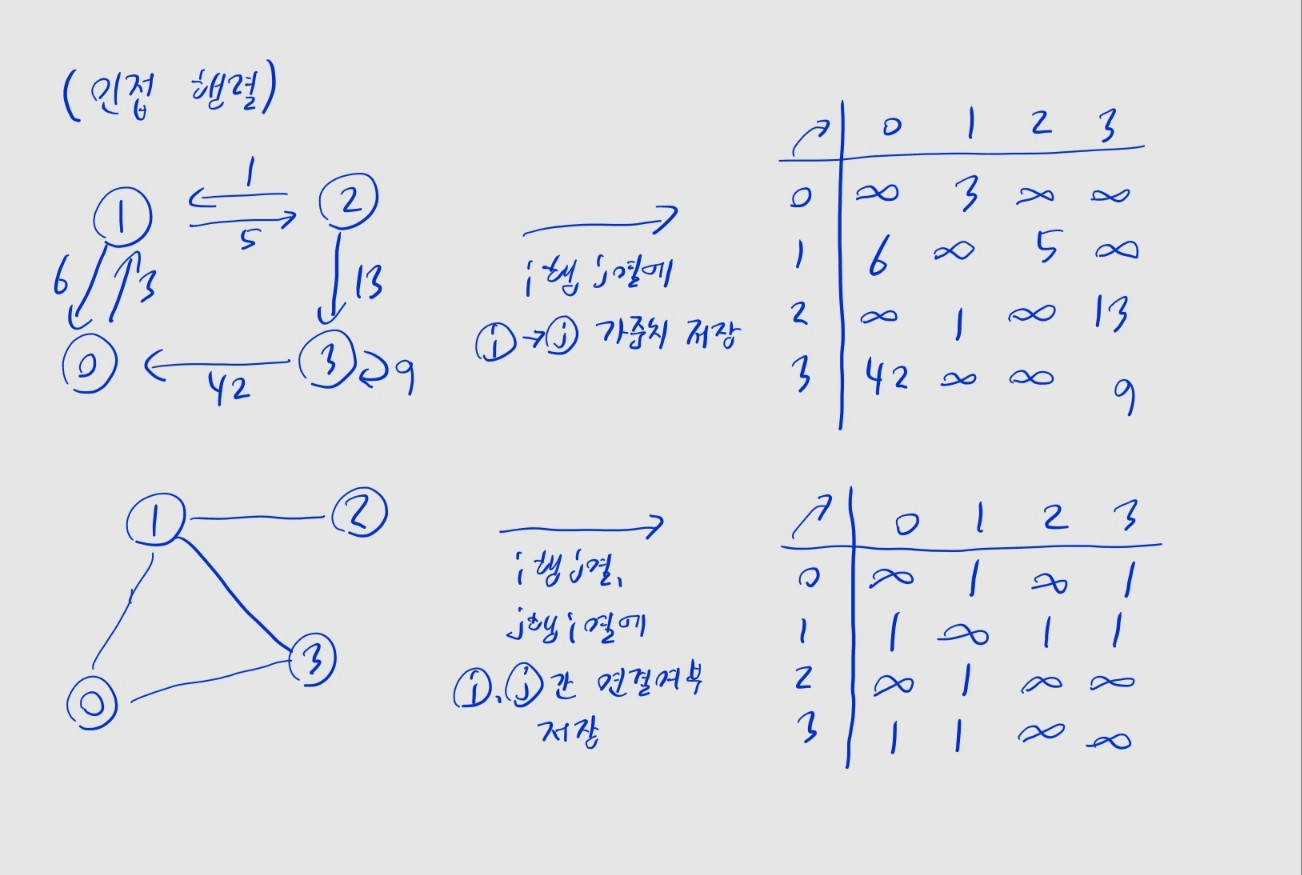 (인접 행렬)
1
1 2
5
6 3 13
0 3 9
42
i행 j열에
i→j 가중치 저장
↗ 0 1 2 3
0 ∞ 3 ∞ ∞
1 6 ∞ 5 ∞
2 ∞ 1 ∞ 13
3 42 ∞ ∞ 9
1 2
3
0
i행 j열,
j행 i열에
i, j 간 연결여부
저장
↗ 0 1 2 3
0 ∞ 1 ∞ 1
1 1 ∞ 1 1
2 ∞ 1 ∞ ∞
3 1 1 ∞ ∞